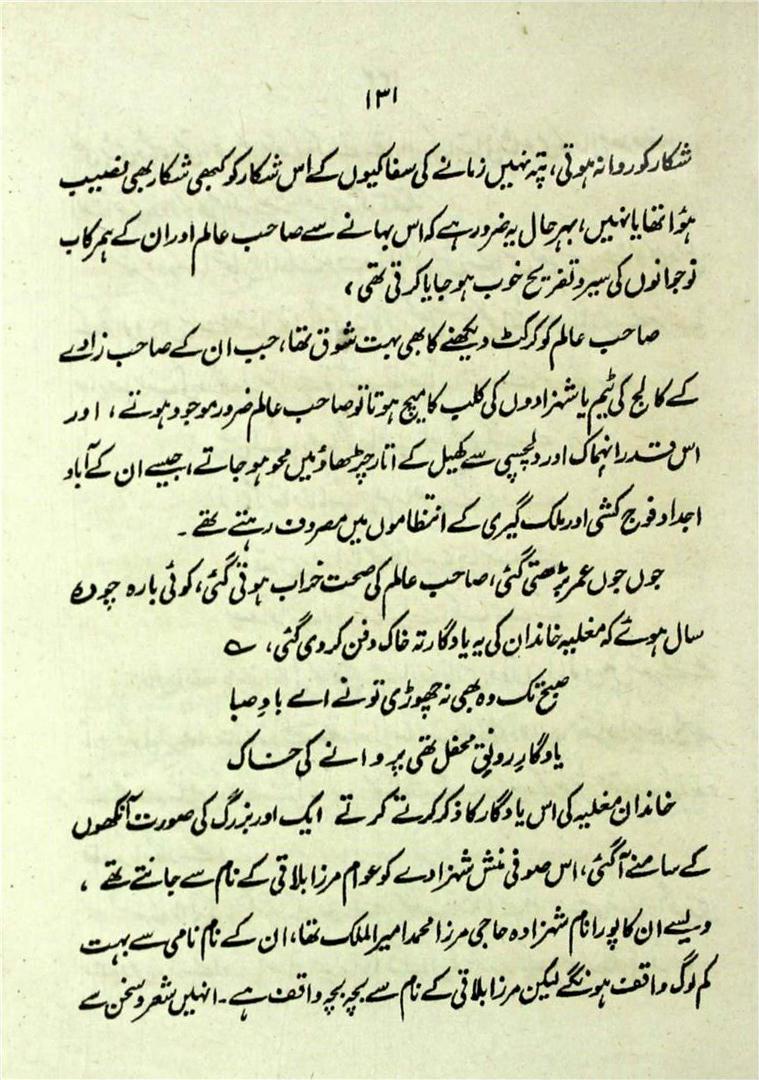 ۱۳۱
شکار کو روانہ ہوتی، پتہ نہیں زمانے کی سفاکیوں کے اس شکار کو کبھی شکار بھی نصیب
ہوٗا تھا یا نہیں، بہر حال یہ ضرور ہے کہ اس بہانے سے صاحب عالم اور ان کے ہمرکاب
نوجوانوں کی سیر و تفریح خوب ہو جایا کرتی تھی،
صاحب عالم کو کرکٹ دیکھنے کا بھی بہت شوق تھا، جب ان کے صاحب زادے
کے کالج کی ٹیم یا شہزادوں کی کلب کا میچ ہوتا تو صاحب عالم ضرور موجود ہوتے، اور
اس قدر انہماک اور دلچسپی سے کھیل کے اتار چڑھاؤ میں محو ہو جاتے، جیسے ان کے آباو
اجداد فوج کشی اور ملک گیری کے انتظاموں میں مصروف رہتے تھے ۔
جوں جوں عمر بڑھتی گئی، صاحب عالم کی صحت خراب ہوتی گئی، کوئی بارہ چودہ
سال ہوئے کہ مغلیہ خاندان کی یہ یادگار تہ خاک دفن کر دی گئی، ؎
صبح تک وہ بھی نہ چھوڑی تو نے اے بادِ صبا
یادگارِ رونقِ محفل تھی پروانے کی خاک
خاندان مغلیہ کی اس یادگار کا ذکر کرتے کرتے ایک اور بزرگ کی صورت آنکھوں
کے سامنے آ گئی، اس صوفی منش شہزادے کو عوام مرزا بلاقی کے نام سے جانتے تھے ،
ویسے ان کا پورا نام شہزادہ حاجی مرزا محمد امیر الملک تھا، ان کے نام نامی سے بہت
کم لوگ واقف ہونگے لیکن مرزا بلاقی کے نام سے بچہ بچہ واقف ہے ۔ انہیں شعر و سخن سے